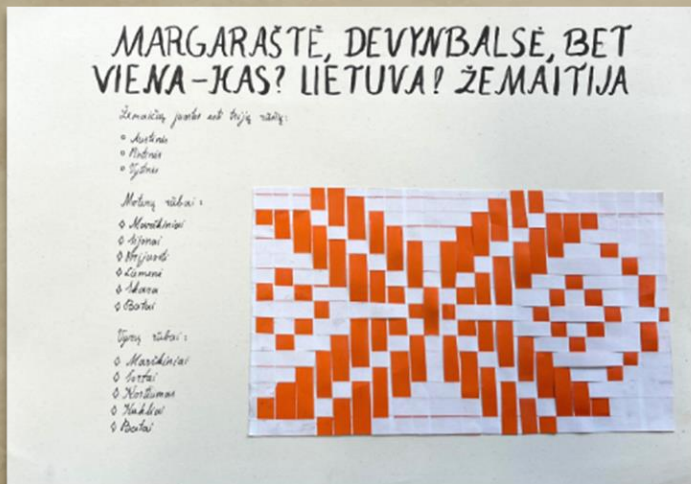 MARGARAŠTĖ, DEVYNBALSĖ, BET
VIENA-KAS? LIETUVA! ŽEMAITIJA
Žemaičių juostos esti trijų rūšių:
Austinės
Pintinės
Vytinės
Moterų rūbai:
Marškiniai
Sijonai
Prijuostė
Liemenė
Skara
Batai
Vyrų rūbai:
Marškiniai
Kostiumas
Batai